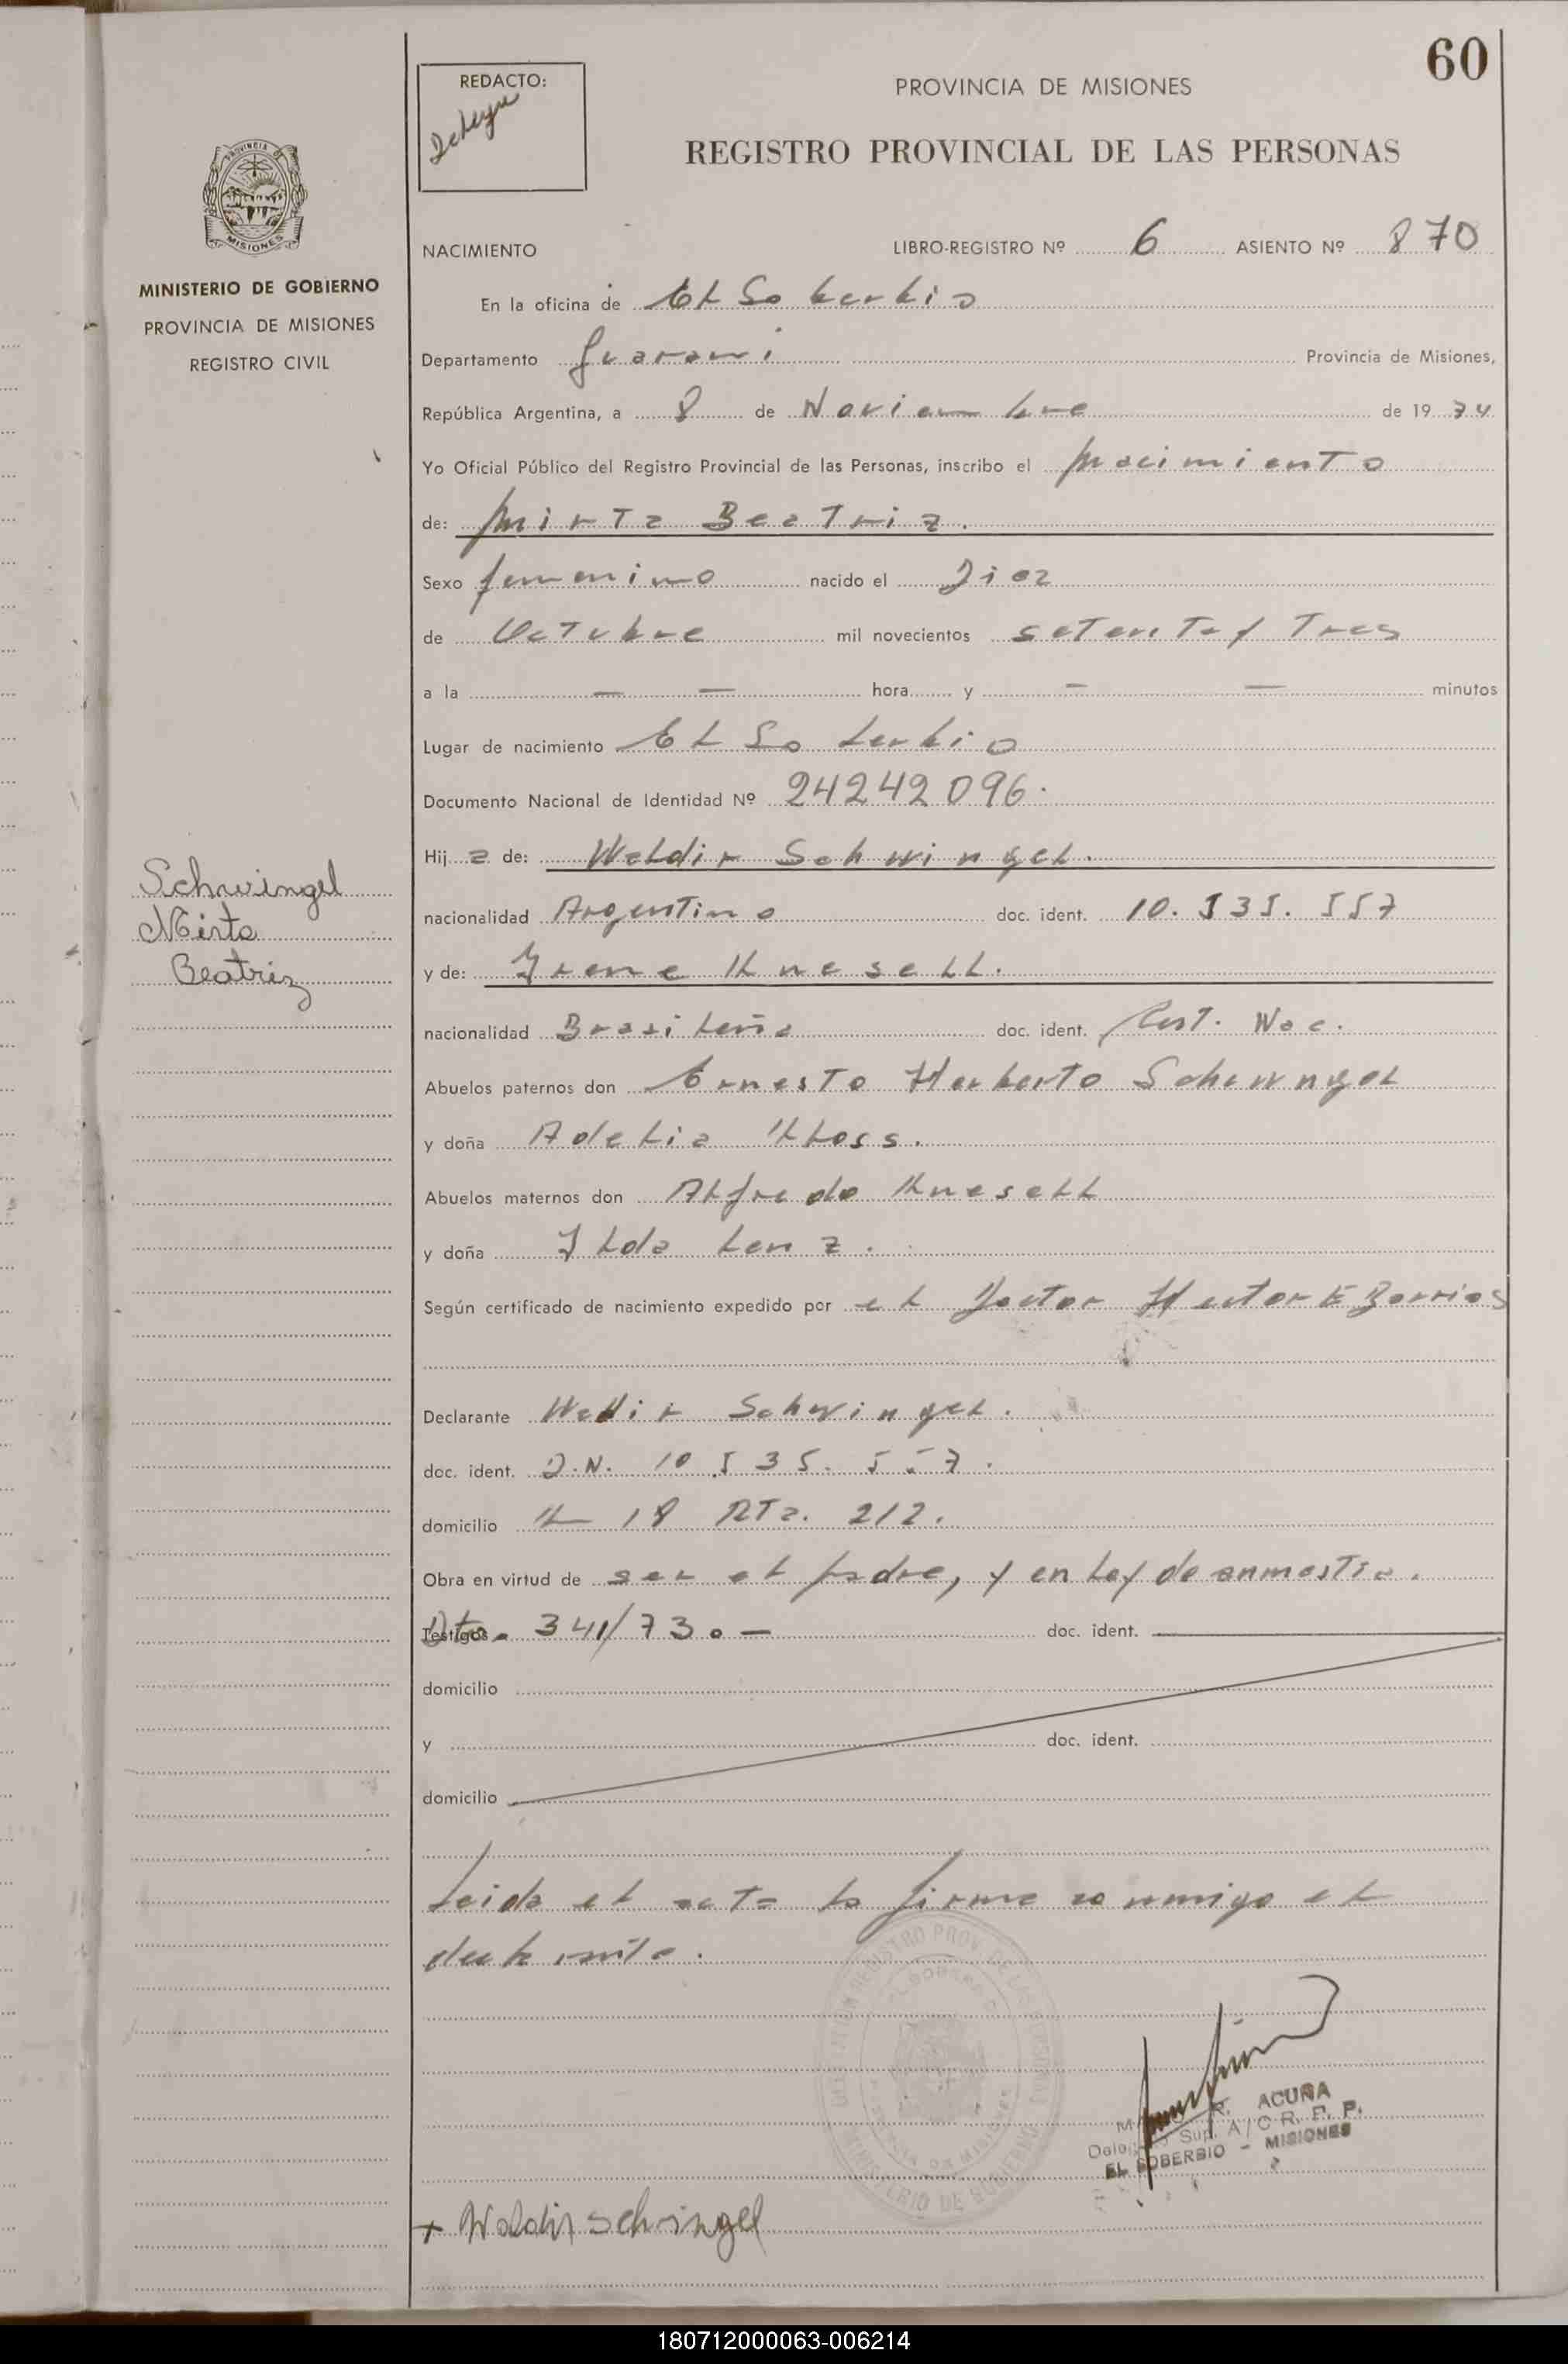 60
REDACTO:
PROVINCIA DE MISIONES
REGISTRO PROVINCIAL DE LAS PERSONAS
PROVINCIA DE
MISIONES
MINISTERIO DE GOBIERNO
PROVINCIA DE MISIONES
REGISTRO CIVIL
NACIMIENTO LIBRO-REGISTRO Nº 6 ASIENTO Nº 870
En la oficina de El Soberbio
Departamento Guarani Provincia de Misiones,
República Argentina, a 8 de Noviembre de 1974
Yo Oficial Público del Registro Provincial de las Personas, inscribo el nacimiento
de: Mirta Beatriz.
Sexo femenino nacido el Diez
de Octubre mil novecientos setenta y Tres
a la — — hora y — — minutos
Lugar de nacimiento El Soberbio
Documento Nacional de Identidad Nº 24242096.
Hij a de: Waldir Schwingel.
Schwingel
Mirta
Beatriz
nacionalidad Argentino doc. ident. 10.535.557
y de: Irene Knesell.
nacionalidad Brasileña doc. ident. Cert. Nac.
Abuelos paternos don Ernesto Herberto Schwngel
y doña Adelia Kloss.
Abuelos maternos don Alfredo Knesell
y doña Ilda Lenz.
Según certificado de nacimiento expedido por el Doctor Hector E Barrios
Declarante Waldir Schwingel.
doc. ident. D.N. 10.535.557.
domicilio K 18 RTa. 212.
Obra en virtud de ser el padre, y en Ley de anmestia.
Testigos Dto. 341/73.— doc. ident.
domicilio
y doc. ident.
domicilio
Leida el acta la firma conmigo el
declarante.
R. ACUÑA
Sup. A/C R. P. P.
EL SOBERBIO - MISIONES
+ Waldir Schringel
180712000063-006214